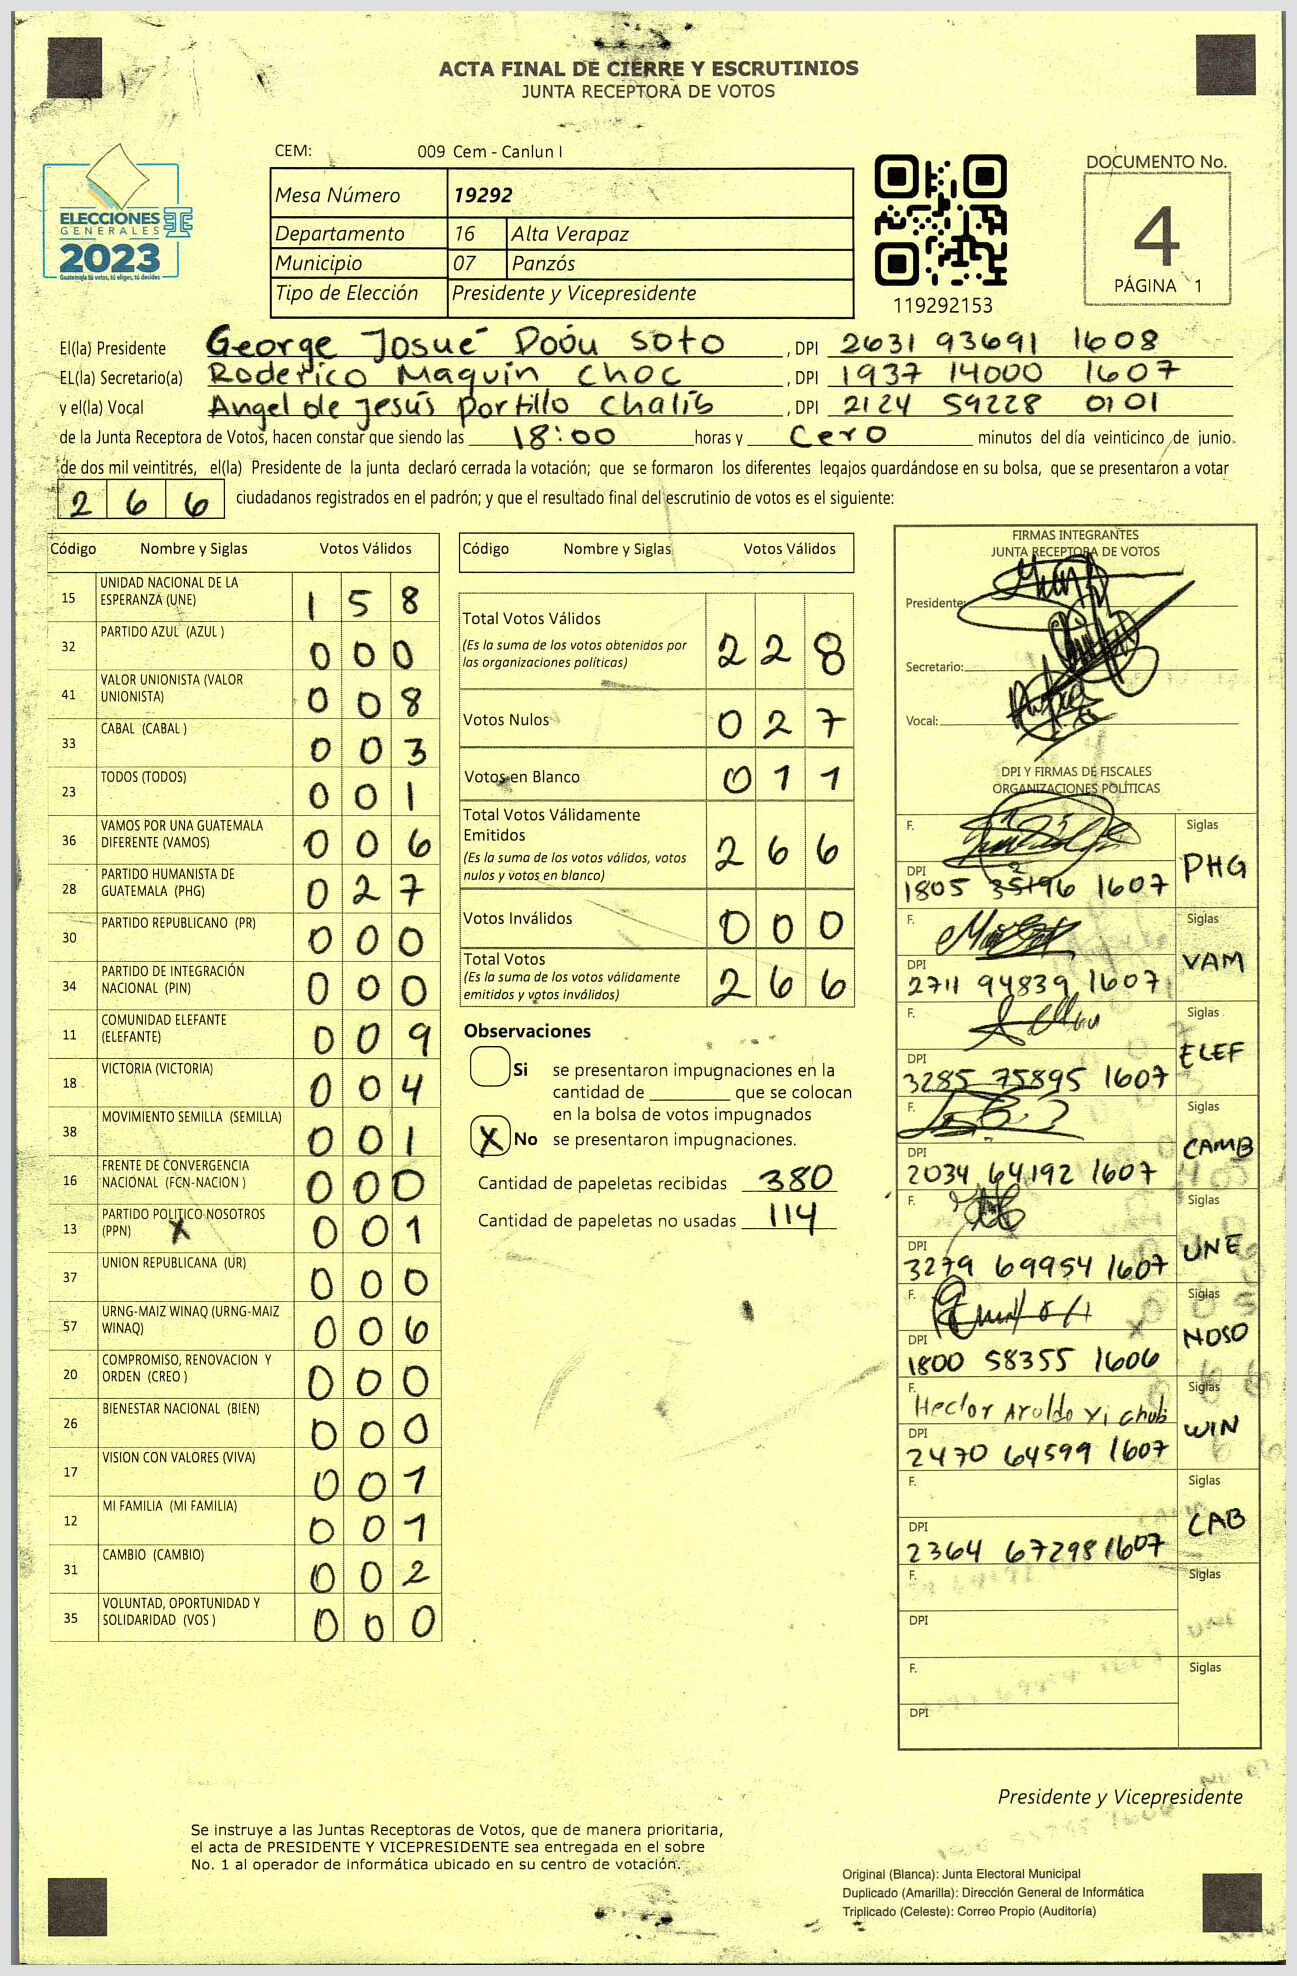 ACTA FINAL DE CIERRE Y ESCRUTINIOS
JUNTA RECEPTORA DE VOTOS
CEM: 009 Cem - Canlun I
Mesa Número 19292
Departamento 16 Alta Verapaz
Municipio 07 Panzós
Tipo de Elección Presidente y Vicepresidente
ELECCIONES
GENERALES
2023
Guatemala tú votas, tú eliges, tú decides
119292153
DOCUMENTO No.
4
PÁGINA 1
El(la) Presidente George Josué Soto , DPI 2631 93691 1608
EL(la) Secretario(a) Roderico Maquin Choc , DPI 1937 14000 1607
y el(la) Vocal Angel de Jesús Portillo Chalib , DPI 2124 59228 0101
de la Junta Receptora de Votos, hacen constar que siendo las 18:00 horas y Cero minutos del día veinticinco de junio
de dos mil veintitrés, el(la) Presidente de la junta declaró cerrada la votación; que se formaron los diferentes legajos guardándose en su bolsa, que se presentaron a votar
266 ciudadanos registrados en el padrón; y que el resultado final del escrutinio de votos es el siguiente:
Código Nombre y Siglas Votos Válidos
15 UNIDAD NACIONAL DE LA ESPERANZA (UNE) 158
32 PARTIDO AZUL (AZUL ) 000
41 VALOR UNIONISTA (VALOR UNIONISTA) 008
33 CABAL (CABAL ) 003
23 TODOS (TODOS) 001
36 VAMOS POR UNA GUATEMALA DIFERENTE (VAMOS) 006
28 PARTIDO HUMANISTA DE GUATEMALA (PHG) 027
30 PARTIDO REPUBLICANO (PR) 000
34 PARTIDO DE INTEGRACIÓN NACIONAL (PIN) 000
11 COMUNIDAD ELEFANTE (ELEFANTE) 009
18 VICTORIA (VICTORIA) 004
38 MOVIMIENTO SEMILLA (SEMILLA) 001
16 FRENTE DE CONVERGENCIA NACIONAL (FCN-NACION ) 000
13 PARTIDO POLITICO NOSOTROS (PPN) X 001
37 UNION REPUBLICANA (UR) 000
57 URNG-MAIZ WINAQ (URNG-MAIZ WINAQ) 006
20 COMPROMISO, RENOVACION Y ORDEN (CREO ) 000
26 BIENESTAR NACIONAL (BIEN) 000
17 VISION CON VALORES (VIVA) 001
12 MI FAMILIA (MI FAMILIA) 001
31 CAMBIO (CAMBIO) 002
35 VOLUNTAD, OPORTUNIDAD Y SOLIDARIDAD (VOS ) 000
Código Nombre y Siglas Votos Válidos
Total Votos Válidos 228
(Es la suma de los votos obtenidos por
las organizaciones políticas)
Votos Nulos 027
Votos en Blanco 011
Total Votos Válidamente
Emitidos 266
(Es la suma de los votos válidos, votos
nulos y votos en blanco)
Votos Inválidos 000
Total Votos 266
(Es la suma de los votos válidamente
emitidos y votos inválidos)
Observaciones
Si se presentaron impugnaciones en la
cantidad de ________ que se colocan
en la bolsa de votos impugnados
X No se presentaron impugnaciones.
Cantidad de papeletas recibidas 380
Cantidad de papeletas no usadas 114
FIRMAS INTEGRANTES
JUNTA RECEPTORA DE VOTOS
Presidente:
Secretario:
Vocal:
DPI Y FIRMAS DE FISCALES
ORGANIZACIONES POLÍTICAS
F. Siglas PHG
DPI 1805 1607
F. Siglas VAM
DPI 2711 94839 1607
F. Siglas ELEF
DPI 3285 75895 1607
F. Siglas CAMB
DPI 2034 64192 1607
F. Siglas UNE
DPI 3279 69954 1607
F. Siglas NOSO
DPI 1800 58355 1606
F. Hector Aroldo Yi chub Siglas WIN
DPI 2470 64599 1607
F. Siglas CAB
DPI 2364 67298 1607
F. Siglas
DPI
F. Siglas
DPI
Presidente y Vicepresidente
Se instruye a las Juntas Receptoras de Votos, que de manera prioritaria,
el acta de PRESIDENTE Y VICEPRESIDENTE sea entregada en el sobre
No. 1 al operador de informática ubicado en su centro de votación.
Original (Blanca): Junta Electoral Municipal
Duplicado (Amarilla): Dirección General de Informática
Triplicado (Celeste): Correo Propio (Auditoría)